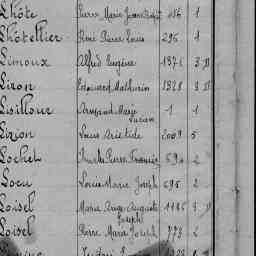 Lhôte Pierre Marie 416 1
Lhotellier René Pierre Louis 296 1
Limoux Alfred Eugène 1376 3 D
Liron Edouard Mathurin 1828 3 D
Livilloux Armand Marie 1 1
Lucien
Lizion Louis Aristide 2069 5
Lochet Charles Pierre François 590 2
Locu Louis Marie Joseph 695 2
Loisel Marie Ange Auguste 1185 3 D
Joseph
Loisel Pierre Marie Joseph 773 2